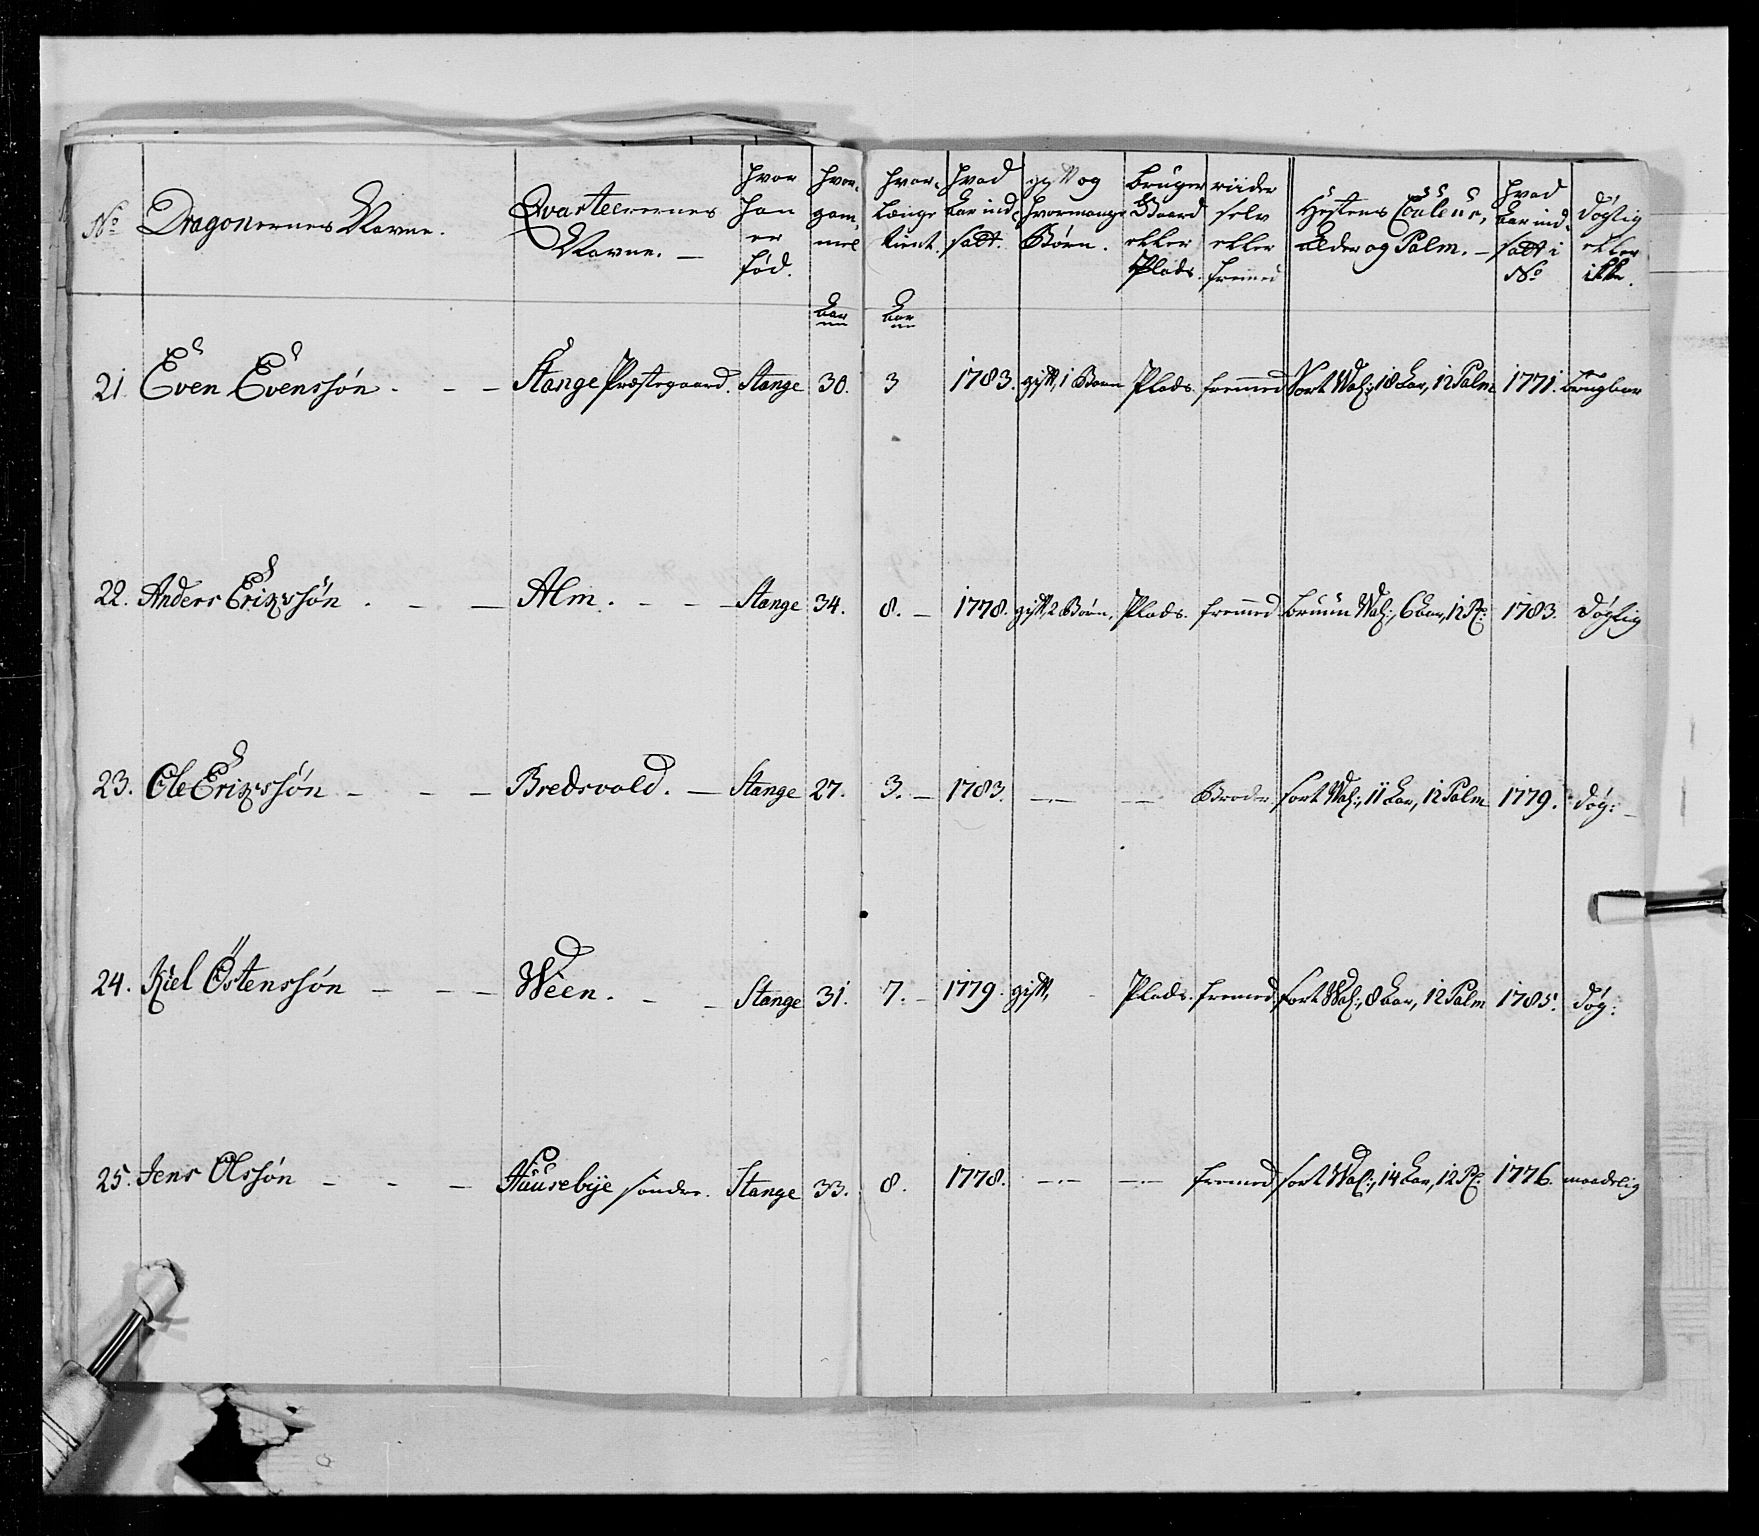 No | Dragonernes Navne. | Qvarteerernes Navne. — | hvor han er fød. | hvor gam̄mel | hvor længe tient. | hvad Aar ind satt. | gift og hvormange Børn. | bruger Gaard eller Plads | riider selv eller fremed | Hestens Couleur, Alder og Palm. — | hvad Aar ind satt i No | døgtig eller ikke.
Aar | Aar
21. | Even Evenssøn. - - — | Stange Præstegaard. | Stange | 30. | 3 | 1783. | gift, 1 Barn | Plads. | fremmed | Sort Val:, 18 Aar, 12 Palm | 1771. | brugbar
22. | Anders Erichssøn. - — | Alm. - - — | Stange | 34. | 8. — | 1778. | gift, 2 Børn, | Plads. | fremmed | bruun Val:, 6 Aar, 12 P: | 1783. | døgtig
23. | Ole Erichssøn - - — | Bredvold. — | Stange | 27. | 3. — | 1783. | —.— | — | Broder | sort Val:, 11 Aar, 12 Palm | 1779. | døg: —
24. | Kiel Östenssøn - - — | Wéen. - — | Stange | 31. | 7. - | 1779. | gift, - | Plads. | fremed | sort Val:, 8 Aar, 12 Palm | 1785. | døg:
25. | Jens Olssøn - - — | Huusebye søndre. | Stange | 33. | 8. | 1778. | —.— | —.— | fremed | sort Val:, 14 Aar, 12 P: | 1776. | maadelig